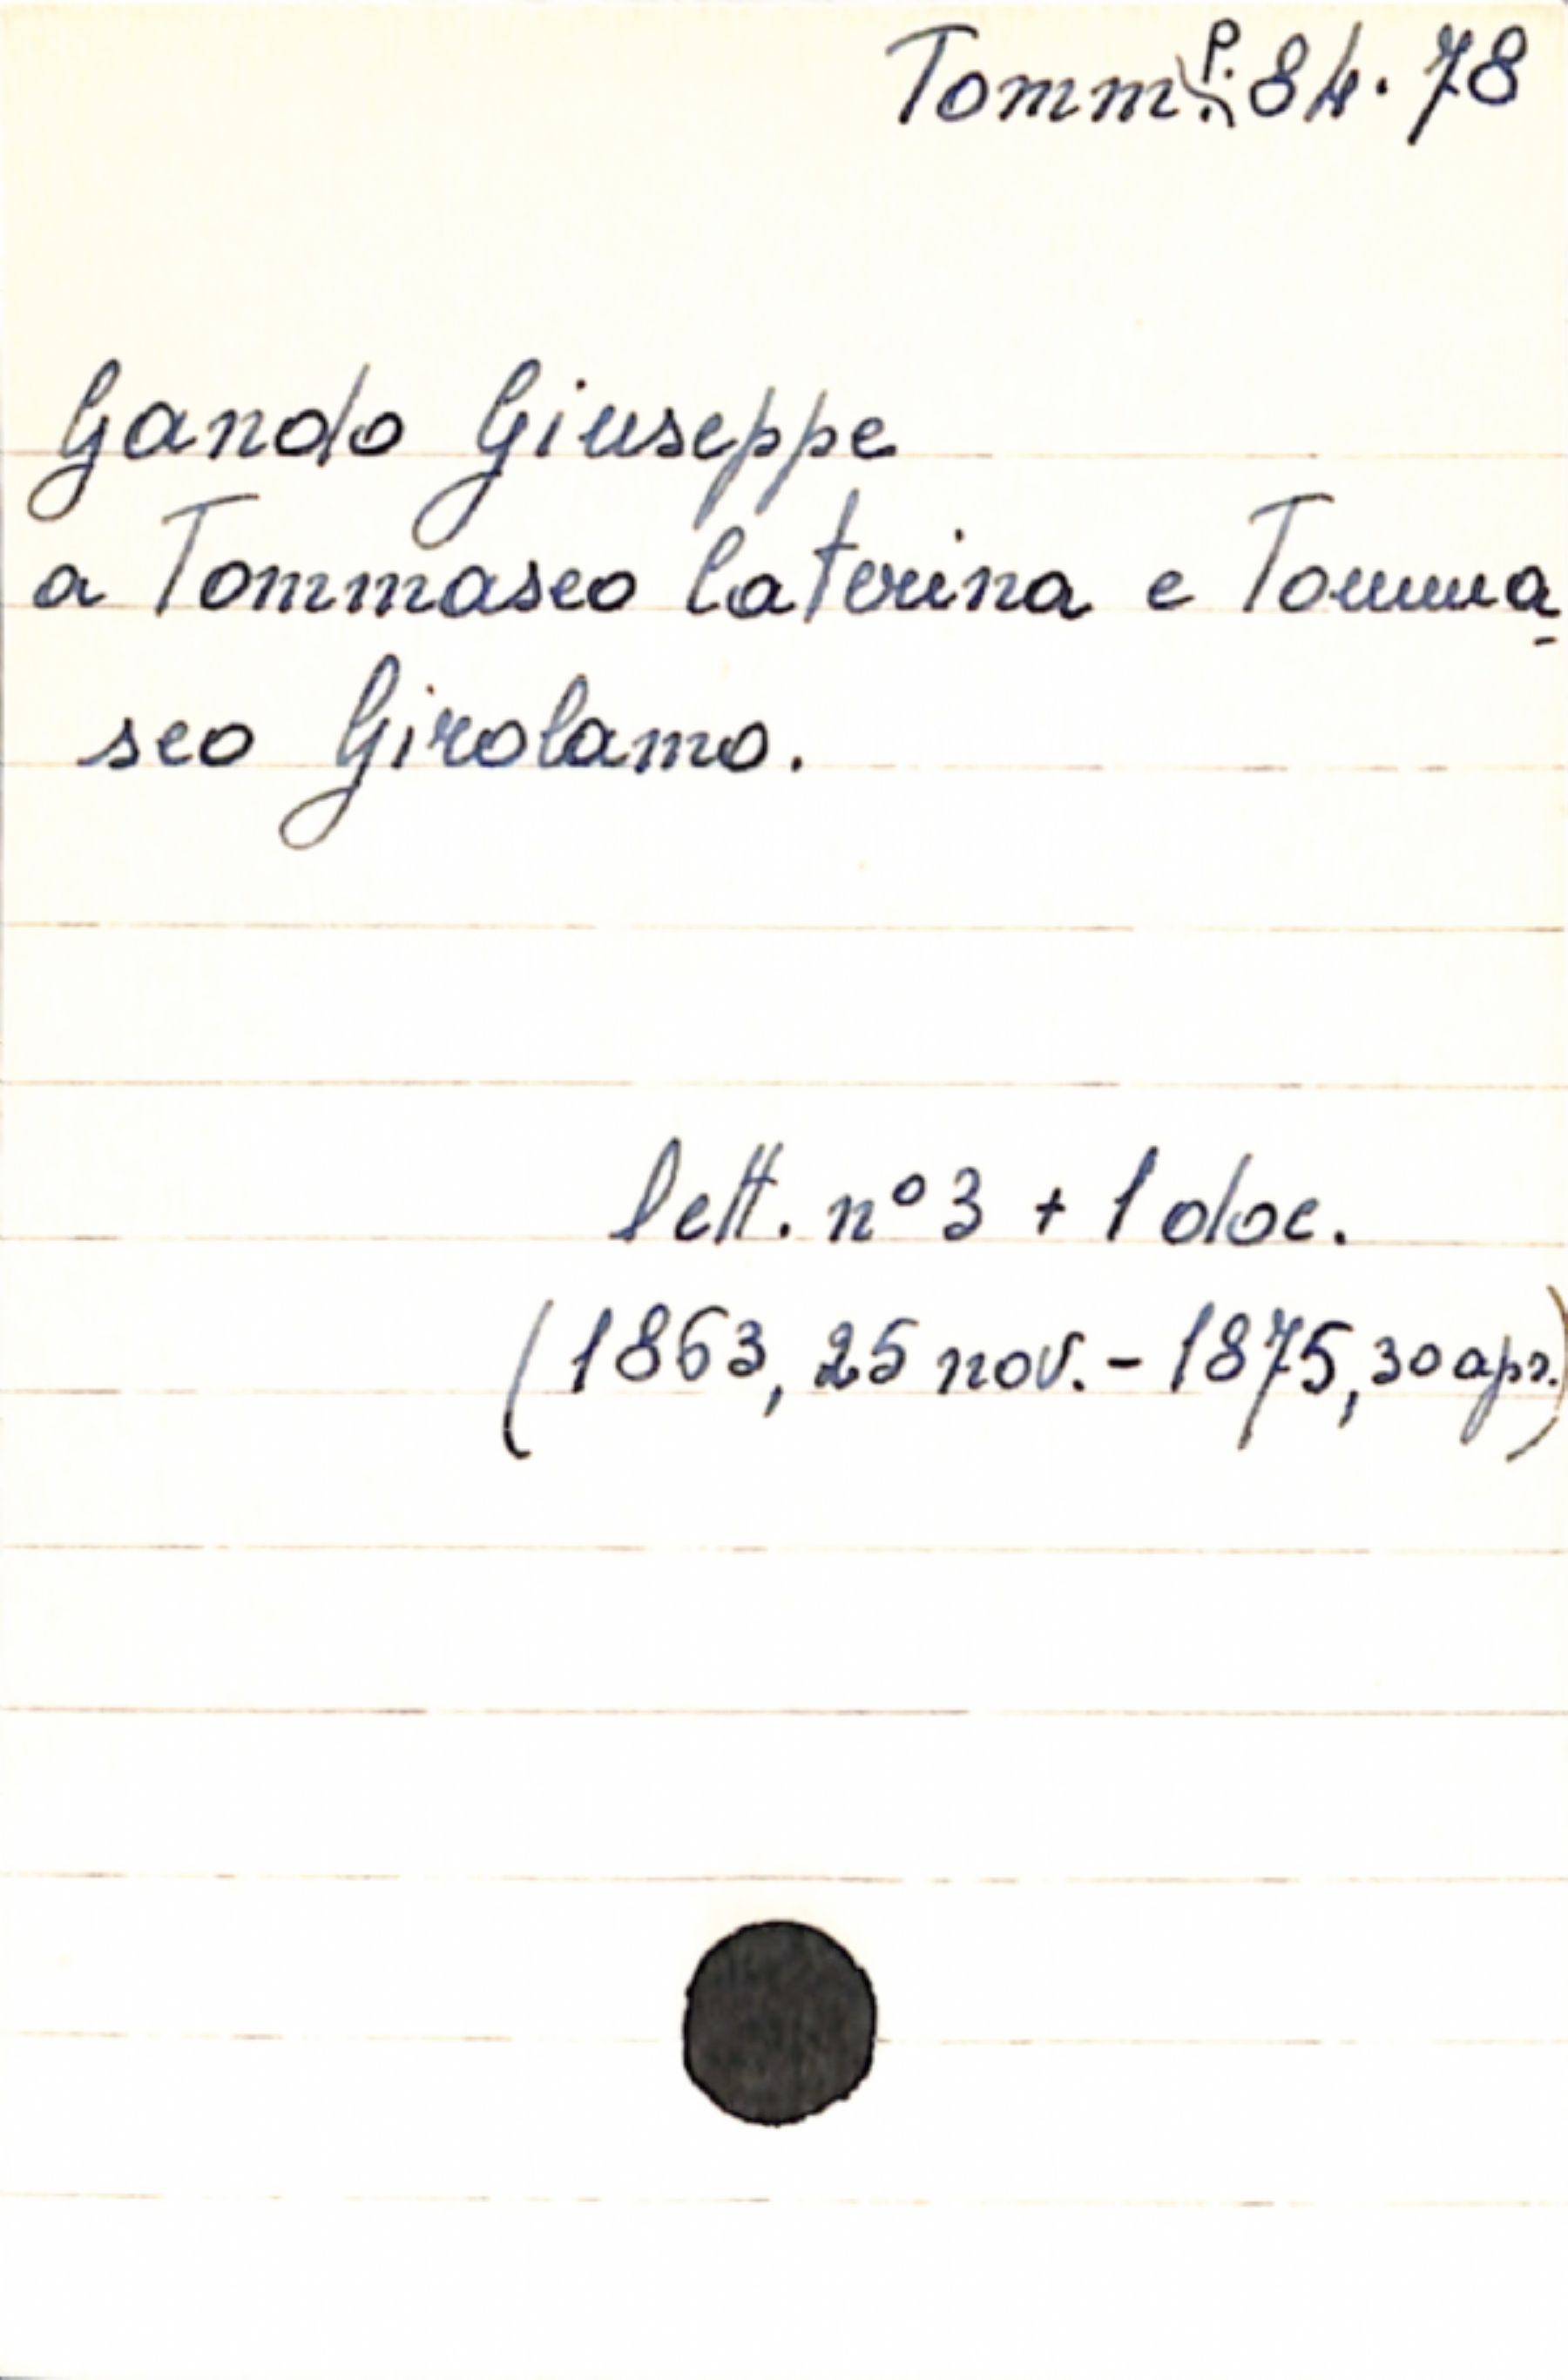 Tomm. P. 84. 78
Gando Giuseppe
a Tommaseo Caterina e Tomma-
seo Girolamo.
lett. n° 3 + 1 doc.
(1863, 25 nov. - 1875, 30 apr.)